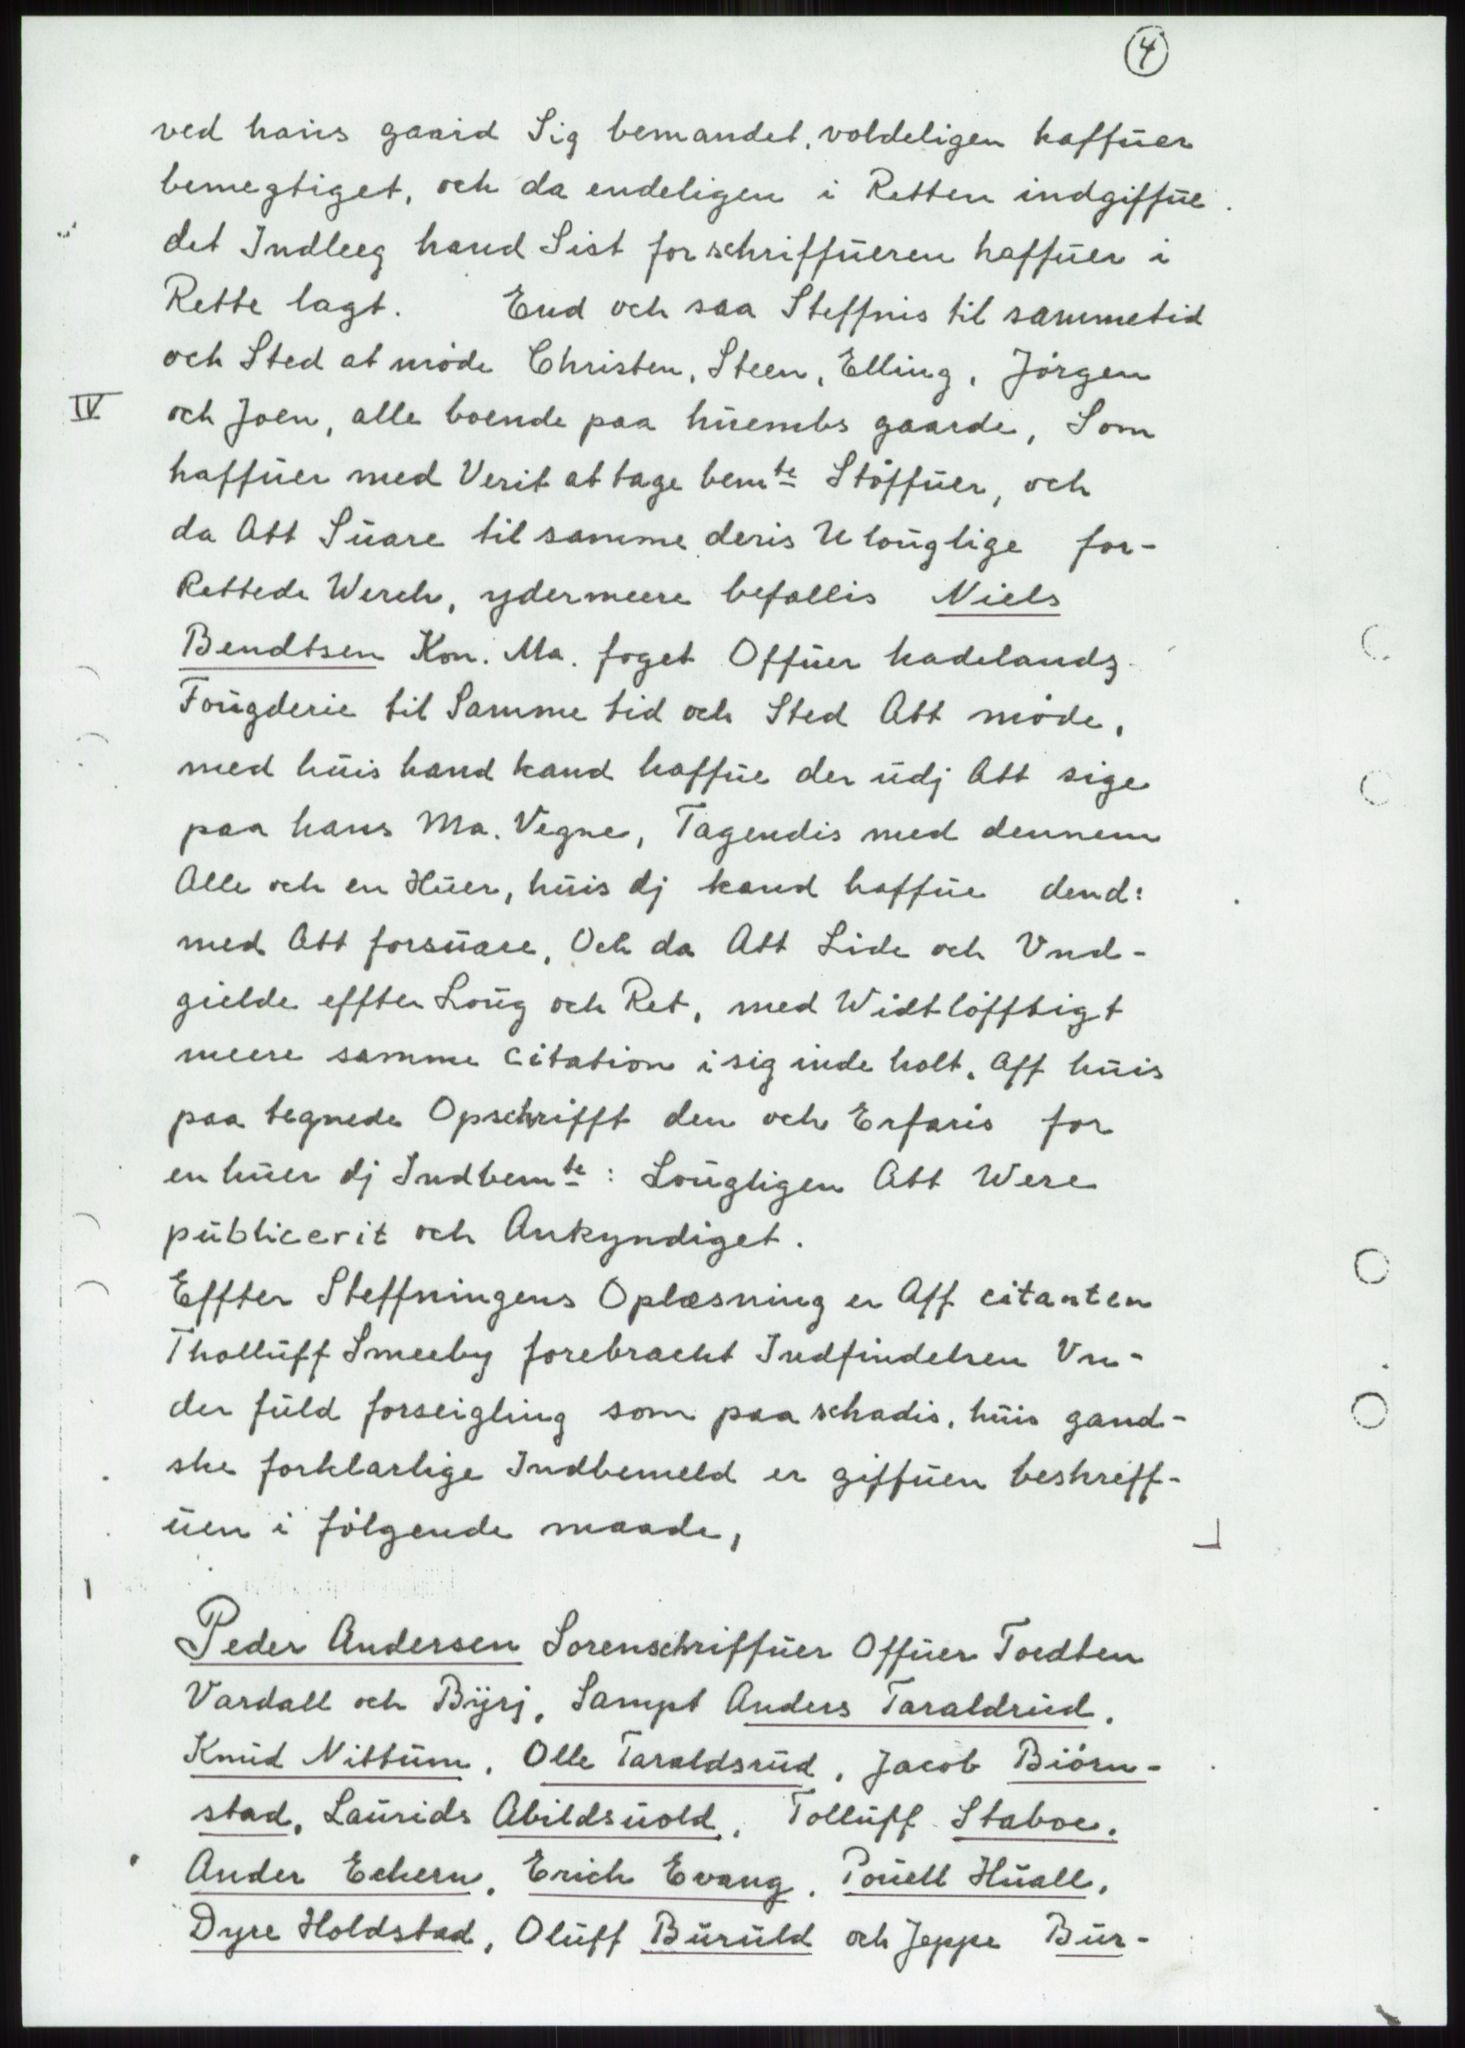 4
ved hans gaard Sig bemandet, voldeligen haffuer
bemegtiget, och da endeligen i Retten indgiffue
det Indleeg hand Sist forschriffueren haffuer i
Rette lagt. End och saa Steffnis til sammetid
och Sted at møde Christen, Steen, Elling, Jørgen
IV och Joen, alle boende paa huembs gaarde, Som
haffuer med Verit at tage bemte Støffuer, och
da Att Suare til samme deris Ulouglige for-
Rettede Werch, ydermeere befallis Niels
Bendtsen Kon. Ma. foget Offuer hadelandz
Fougderie til Samme tid och Sted Att møde,
med huis hand kand haffue der udj Att sige
paa hans Ma. Vegne, Tagendis med dennem
Alle och en Huer, huis dj kand haffue dend:
med Att forsuare, Och da Att Lide och Vnd-
gielde effter Loug och Ret, med Widtløfftigt
meere samme Citation i sig inde holt. Aff huis
paa tegnede Opschrifft den och Erfaris for
en huer dj Indbemte: Lougligen Att Were
publicerit och Ankyndiget.
Effter Steffningens Oplæsning er Aff citanten
Tholluff Smeeby forebracht Indfindelsen Vn-
der fuld forseigling som paa schadis, huis gand-
ske forklarlige Indbemeld er giffuen beskreff-
uen i følgende maade,
Peder Andersen Sorenschriffuer Offuer Toedten
Vardall och Byrj, Sampt Anders Taraldrud,
Knud Nittum, Olle Taraldsrud, Jacob Biørn-
stad, Laurids Abildsuold, Tolluff Staboe,
Ander Echern, Erich Evang, Pouell Huall,
Dyre Holdstad, Oluff Buruld och Jeppe Bur-